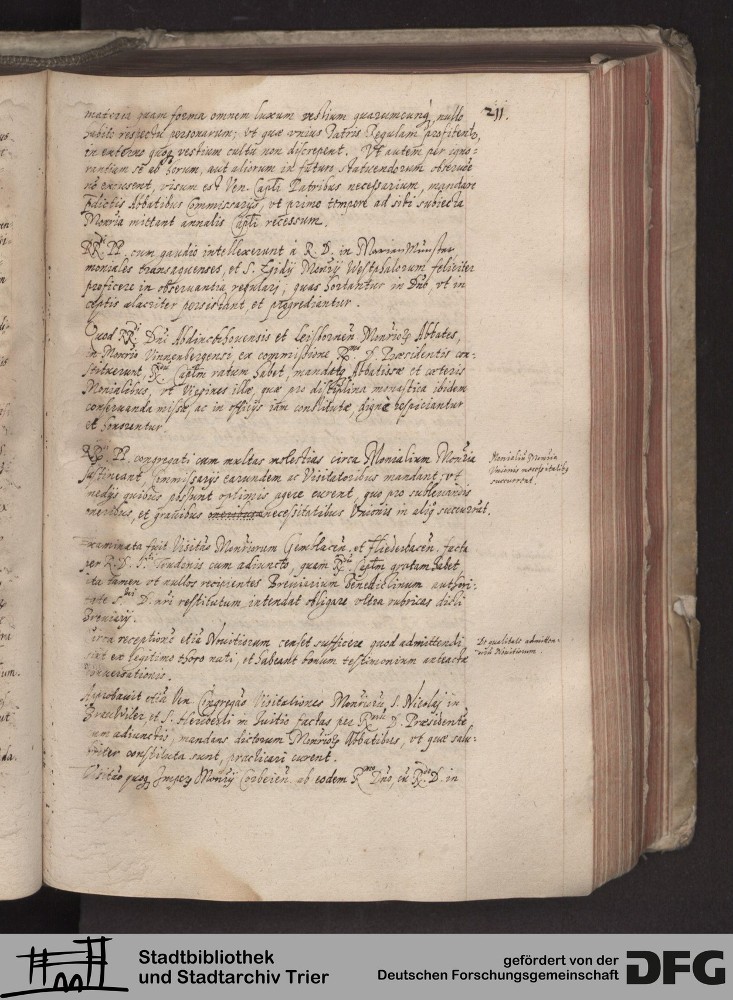 211.
materia quam forma omnem luxum vestium quarumcunq, nullo
habito respectu personarum: vt quæ vnius Patris Regulam profitentr,
in externo quoq vestium cultu non discrepent. Vt autem per igno-
rantiam se ab horum, aut aliorum in futurū statuendorum observãe
nõ excusent, visum est Ven. Capli Patribus necessarium, mandare
pdictis Abbatibus Commissarys, vt primo tempore ad sibi subiecta
Monria mittant annalis Capli recessum.
RRdi PP. cum gaudio intellexerunt à R. D. in Marien Munster
moniales transaquenses, et S. Egidy Monrÿ Westphalorum feliciter
proficere in observantia regulari, quas hortantur in Dnõ, vt in
cœptis alacriter persistant, et progrediantur.
Quod RRdi Dni Abdinckhouensis et Leissbornen Monrioꝝ Abbates,
in Monrio Vinnenbergensi, ex commissione Rmi D. Præsidentis con-
stituerunt, Rdm Capltm ratum habet, mandatq Abbatissæ et cæteris
Monialibus, vt Virgines illæ, quæ pro disciplina monastica ibidem
conseruanda missæ, ac in officijs iam constitutæ, dignè respiciantur
et honorentur.
RRdi PP. congregati cum multas molestias circa Monialium Monria
sustineant, Commissarys earundem ac Visitatoribus mandant, vt
medys quibus possunt optimis agere curent, quo pro subleuandis
oneribus, et grauibus necessitatibus Vnionis in aliq succurrāt.
Monialiū Monria
Vnionis necessitatibq
succurrant.
Examinata fuit Visitão Monriorum Gemblacen, et Flederbacen, facta
per R. D. Sti Trudonis cum adiuncto, quam Rdm Capltm gratam habet,
ita tamen vt nullos recipientes Breuiarium Benedictinum authori-
tate Smi D. nri restitutum, intendat obligare vltra rubricas dicti
Breuiarÿ.
Circa receptionẽ etiã Nouitiorum censet sufficere quod admittendi
sint ex legitimo thoro nati, et habeant bonum testimonium anteactæ
conuersationis.
De qualitate admitten-
dorū Nouitiorum.
Approbauit etiã Ven. Congregão Visitationes Monriorū, S. Nicolaj in
Brauwiler, et S. Heriberti in Tuitio factas per Rdm D. Præsidente
cum adiunctis, mandans dictorum Monrioꝝ Abbatibus, vt quæ salu-
briter constituta sunt, practicari curent.
Visitão quoq Imperꝫ Monrÿ Corbeien, ab eodem Rmo Dno, cū Rdo D. in
Stadtbibliothek
und Stadtarchiv Trier
gefördert von der
Deutschen Forschungsgemeinschaft
DFG